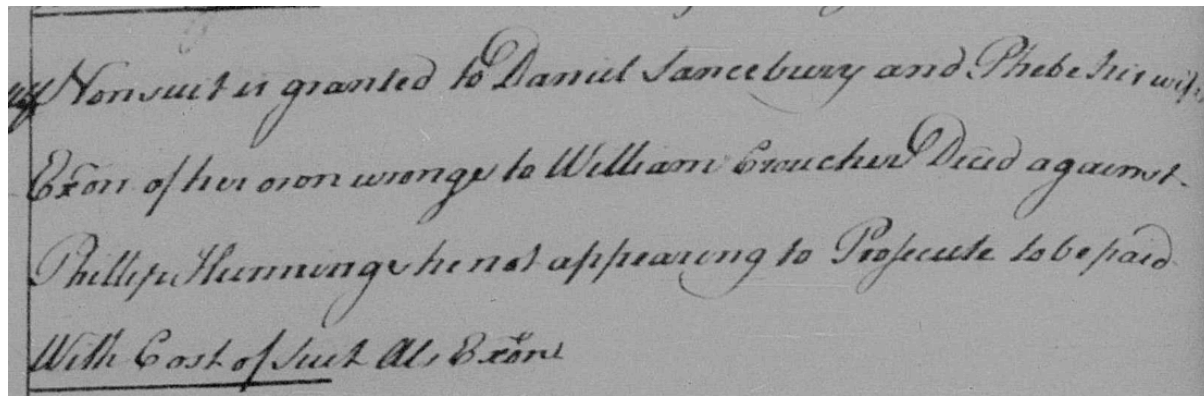 Nonsuit is granted to Daniel Sancebury and Phebe his wife
Exon of her own wronge to William Croucher Decd against
Phillip Hunnings he not appearing to Prosecute to be paid
With Cost of Suit Als Exon